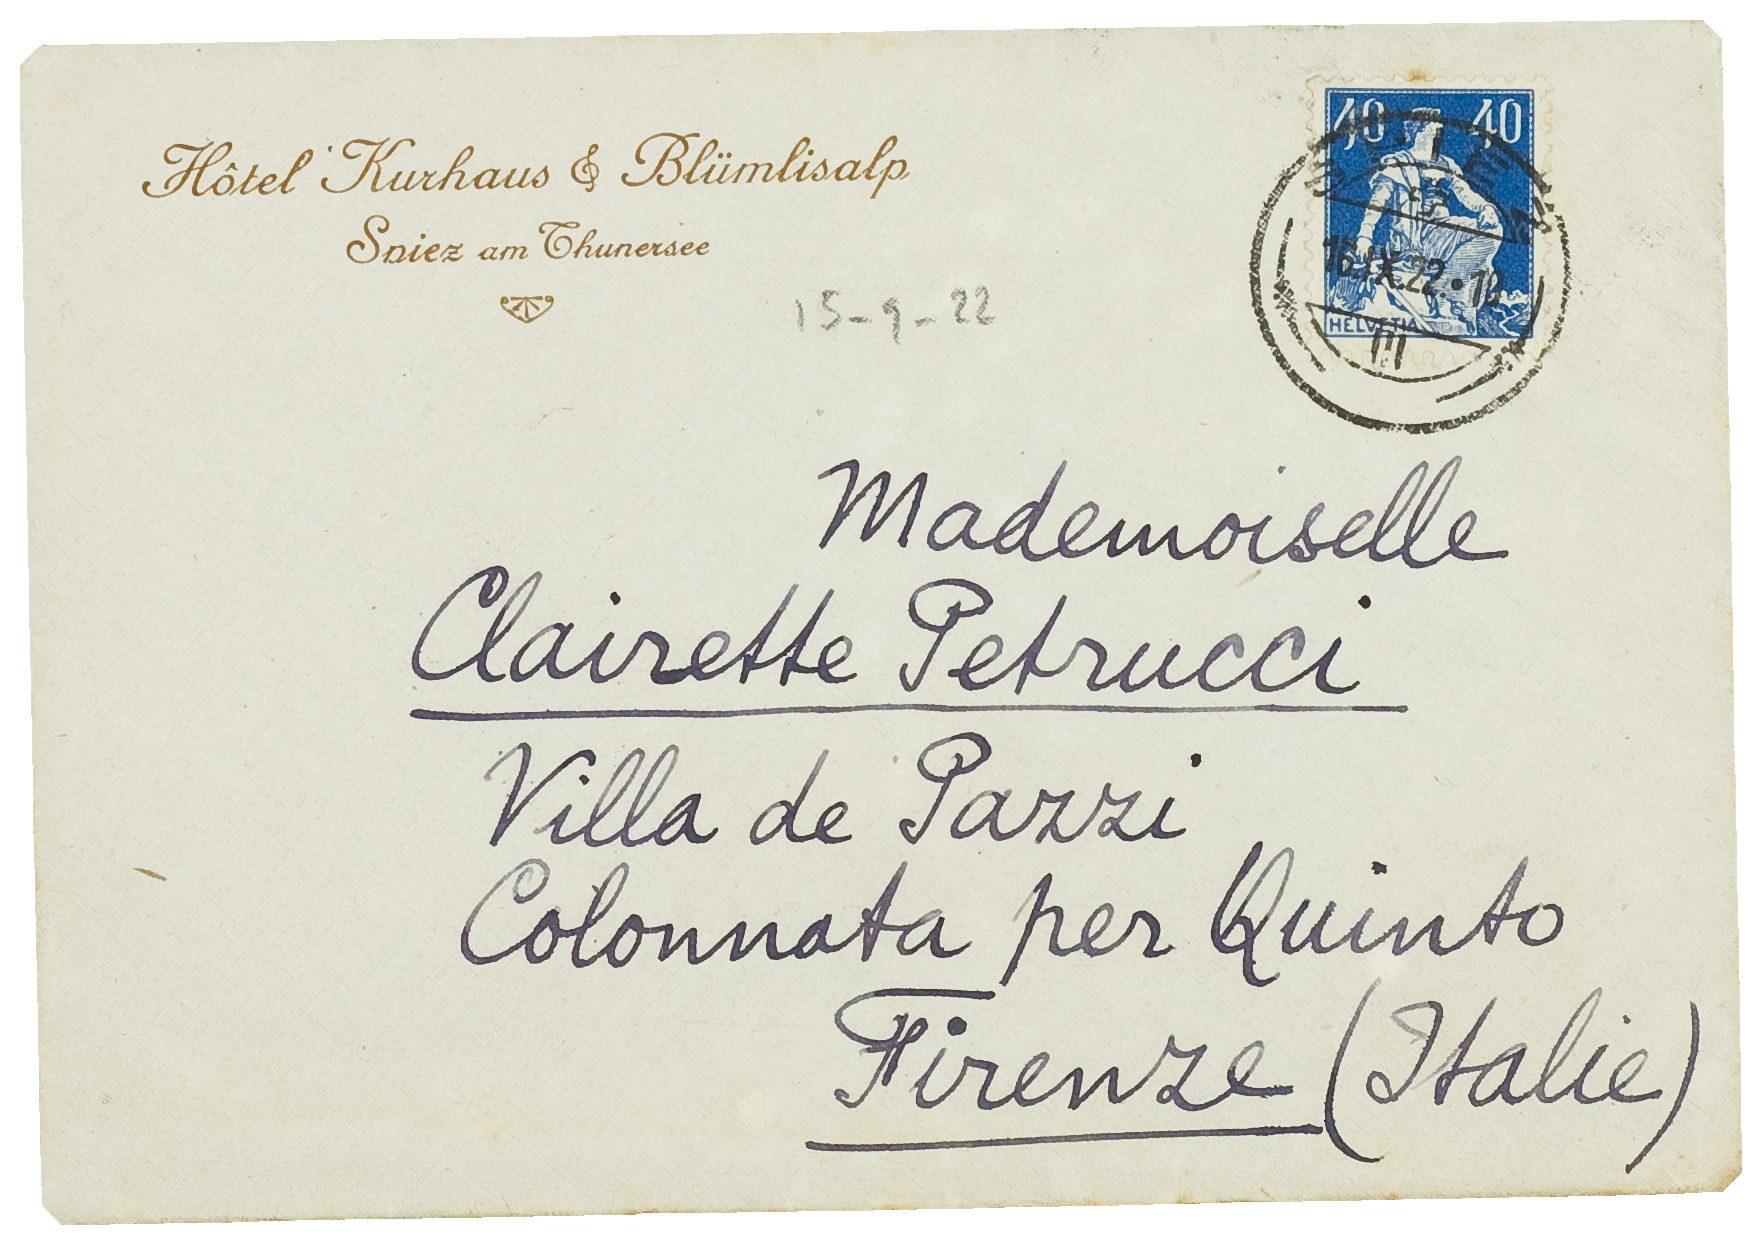 Hôtel Kurhaus & Blümlisalp
Spiez am Thunersee
15-9-22
40 40
SPIEZ
16.IX.22.•12
HELVETIA
Mademoiselle
Clairette Petrucci
Villa de Pazzi
Colonnata per Quinto
Firenze (Italie)